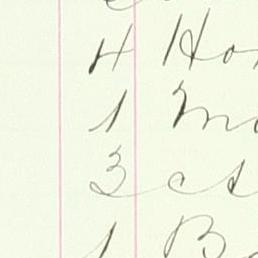 4 Ho
1 Mo
3 ct
1 B